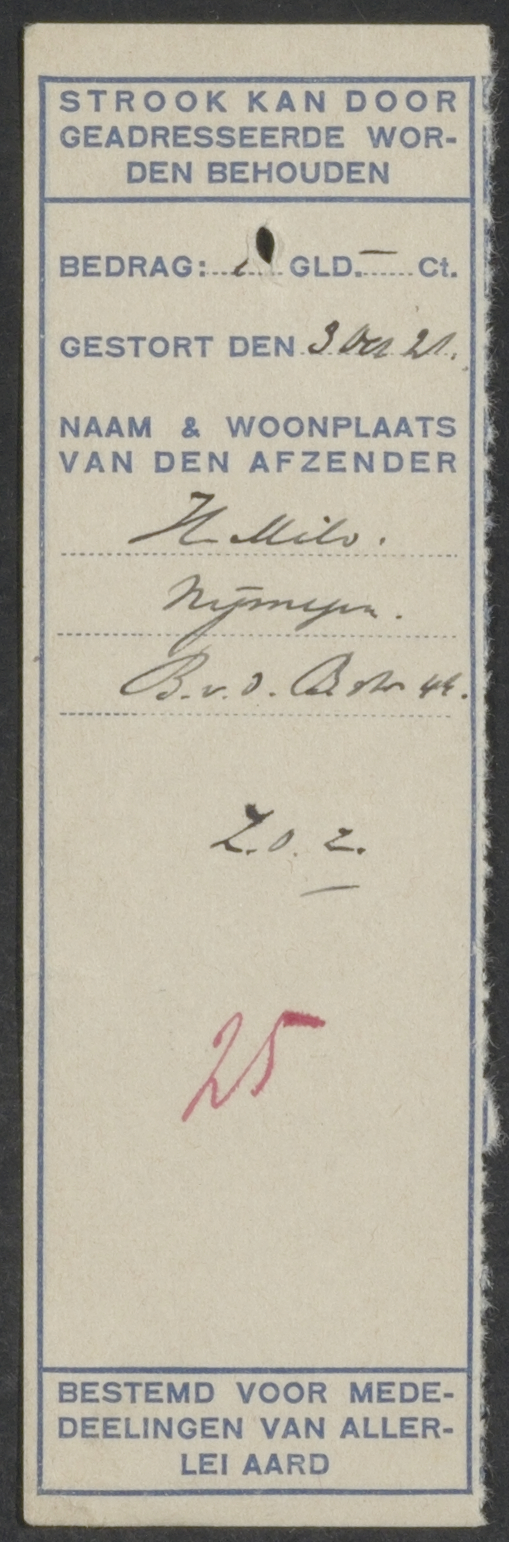 STROOK KAN DOOR
GEADRESSEERDE WOR-
DEN BEHOUDEN
BEDRAG: GLD. — Ct.
GESTORT DEN 3 Oct 21.
NAAM & WOONPLAATS
VAN DEN AFZENDER
H Milo.
Nijmegen.
B. v. d. 44.
Z. o. z.
25
BESTEMD VOOR MEDE-
DEELINGEN VAN ALLER-
LEI AARD